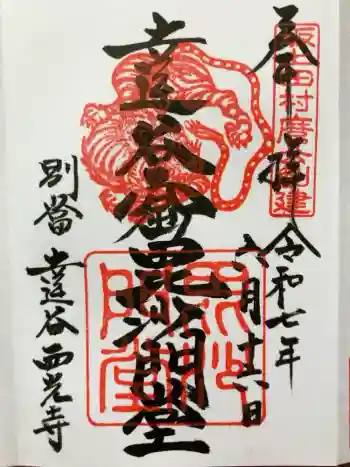 奉拝 令和七年
六月十六日
坂上田村麿公創建
達谷窟毘沙門堂
毘沙門堂
別當 達谷西光寺